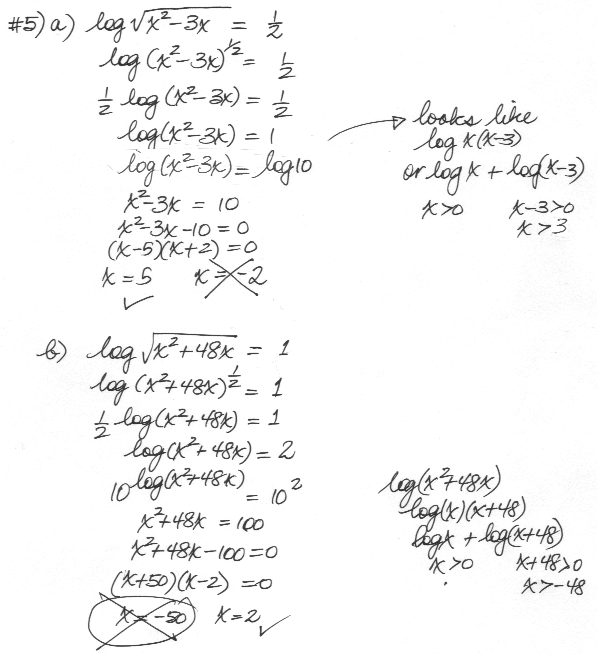 #5) a) log √(x²-3x) = 1/2
log (x²-3x)^1/2 = 1/2
1/2 log (x²-3x) = 1/2
log(x²-3x) = 1
log(x²-3x) = log10
x²-3x = 10
x²-3x-10 = 0
(x-5)(x+2) = 0
x = 5 x = -2
✓
looks like
log x(x-3)
or log x + log(x-3)
x>0 x-3>0
x>3
b) log √(x²+48x) = 1
log (x²+48x)^1/2 = 1
1/2 log(x²+48x) = 1
log(x²+48x) = 2
10^log(x²+48x) = 10²
x²+48x = 100
x²+48x-100 = 0
(x+50)(x-2) = 0
x = -50 x = 2 ✓
log(x²+48x)
log(x)(x+48)
logx + log(x+48)
x>0 x+48>0
x>-48